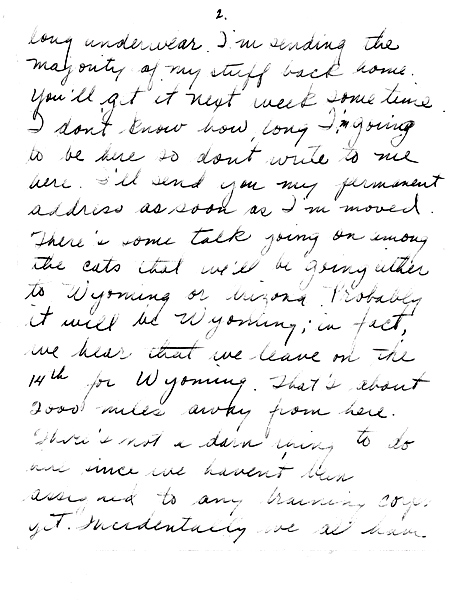 2.
long underwear. I'm sending the
majority of my stuff back home.
You'll get it next week some time.
I don't know how long I'm going
to be here so don't write to me
here. I'll send you my permanent
address as soon as I'm moved.
There's some talk going on among
the cats that we'll be going either
to Wyoming or Arizona. Probably
it will be Wyoming; in fact,
we hear that we leave on the
14th for Wyoming. That's about
2000 miles away from here.
There's not a darn thing to do
here since we haven't been
assigned to any training
yet. Incidentally we all have